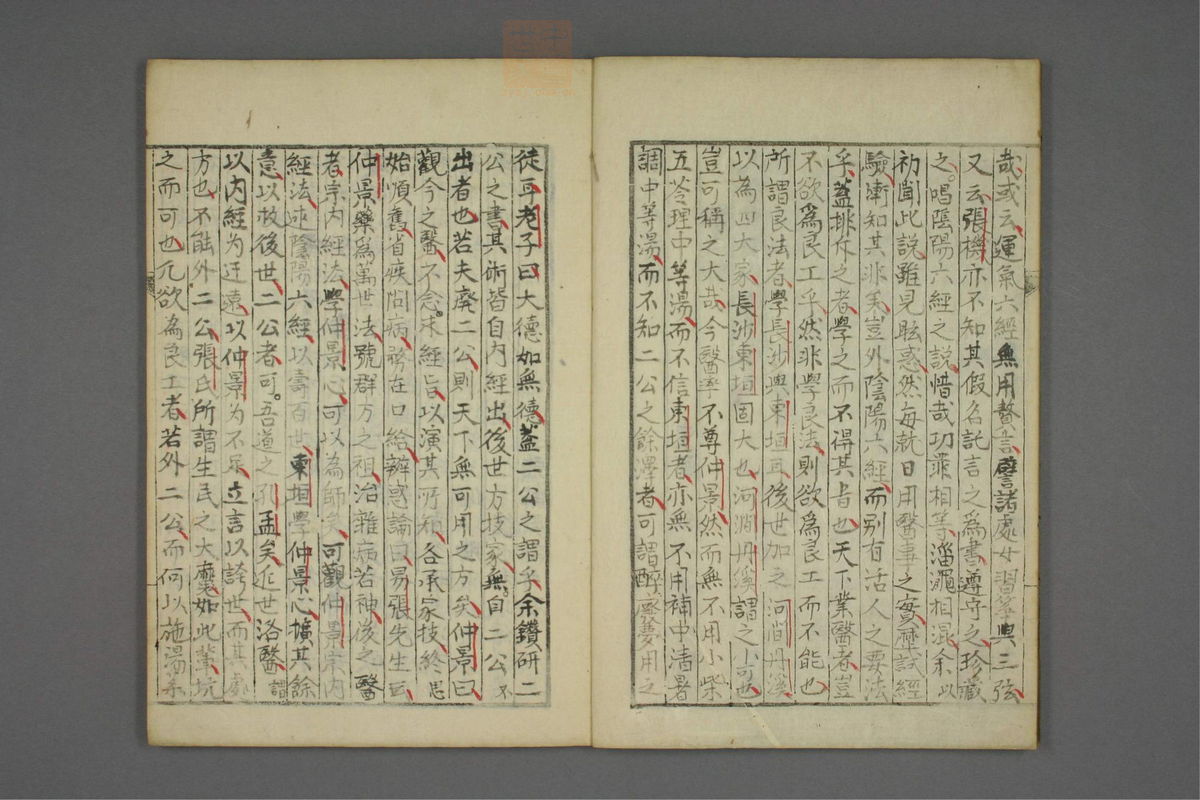 哉或云運氣六經無用贅言譬諸處女習箏與三弦
又云張機亦不知其假名託言之爲書遵守之珍藏
之唱陰陽六經之說惜哉功罪相等淄澠相混余以
初聞此説雖見眩惑然每就日用醫事之實歷試經
驗漸知其非矣豈外陰陽六經而别有活人之要法
乎蓋排斥之者學之而不得其旨也天下業醫者豈
不欲爲良工乎然非學良法則欲爲良工而不能也
所謂良法者學長沙與東垣耳後世加之河間丹溪
以為四大家長沙東垣固大也河澗丹溪謂之小可也
豈可稱之大哉今醫率不尊仲景然而無不用小柴
五苓理中等湯而不信東垣者亦無不用補中清暑
調中等湯而不知二公之餘澤者可謂醉 夢用之
徒耳老子曰大德如無德蓋二公之謂乎余鑽研二
公之書其術皆自内經出後世方技家無自二公不
出者也若夫廢二公則天下無可用之方矣仲景曰
觀今之醫不念求經旨以演其所知各承家技終
始順舊省疾問病務在口給辨惑論曰易張先生云
仲景藥爲萬世法號群方之祖治雜病若神後之醫
者宗内經法學仲景心可以為師矣可觀仲景宗内
經法述陰陽六經以壽百世東垣學仲景心擴其餘
意以救後世二公者可吾道之孔孟矣近世洛醫謂
以内經为迂遠以仲景为不足立言以誇世而其處
方也不能外二公張氏所謂生民之大 如此輩坑
之而可也凢欲為良工者若外二公而何以施湯